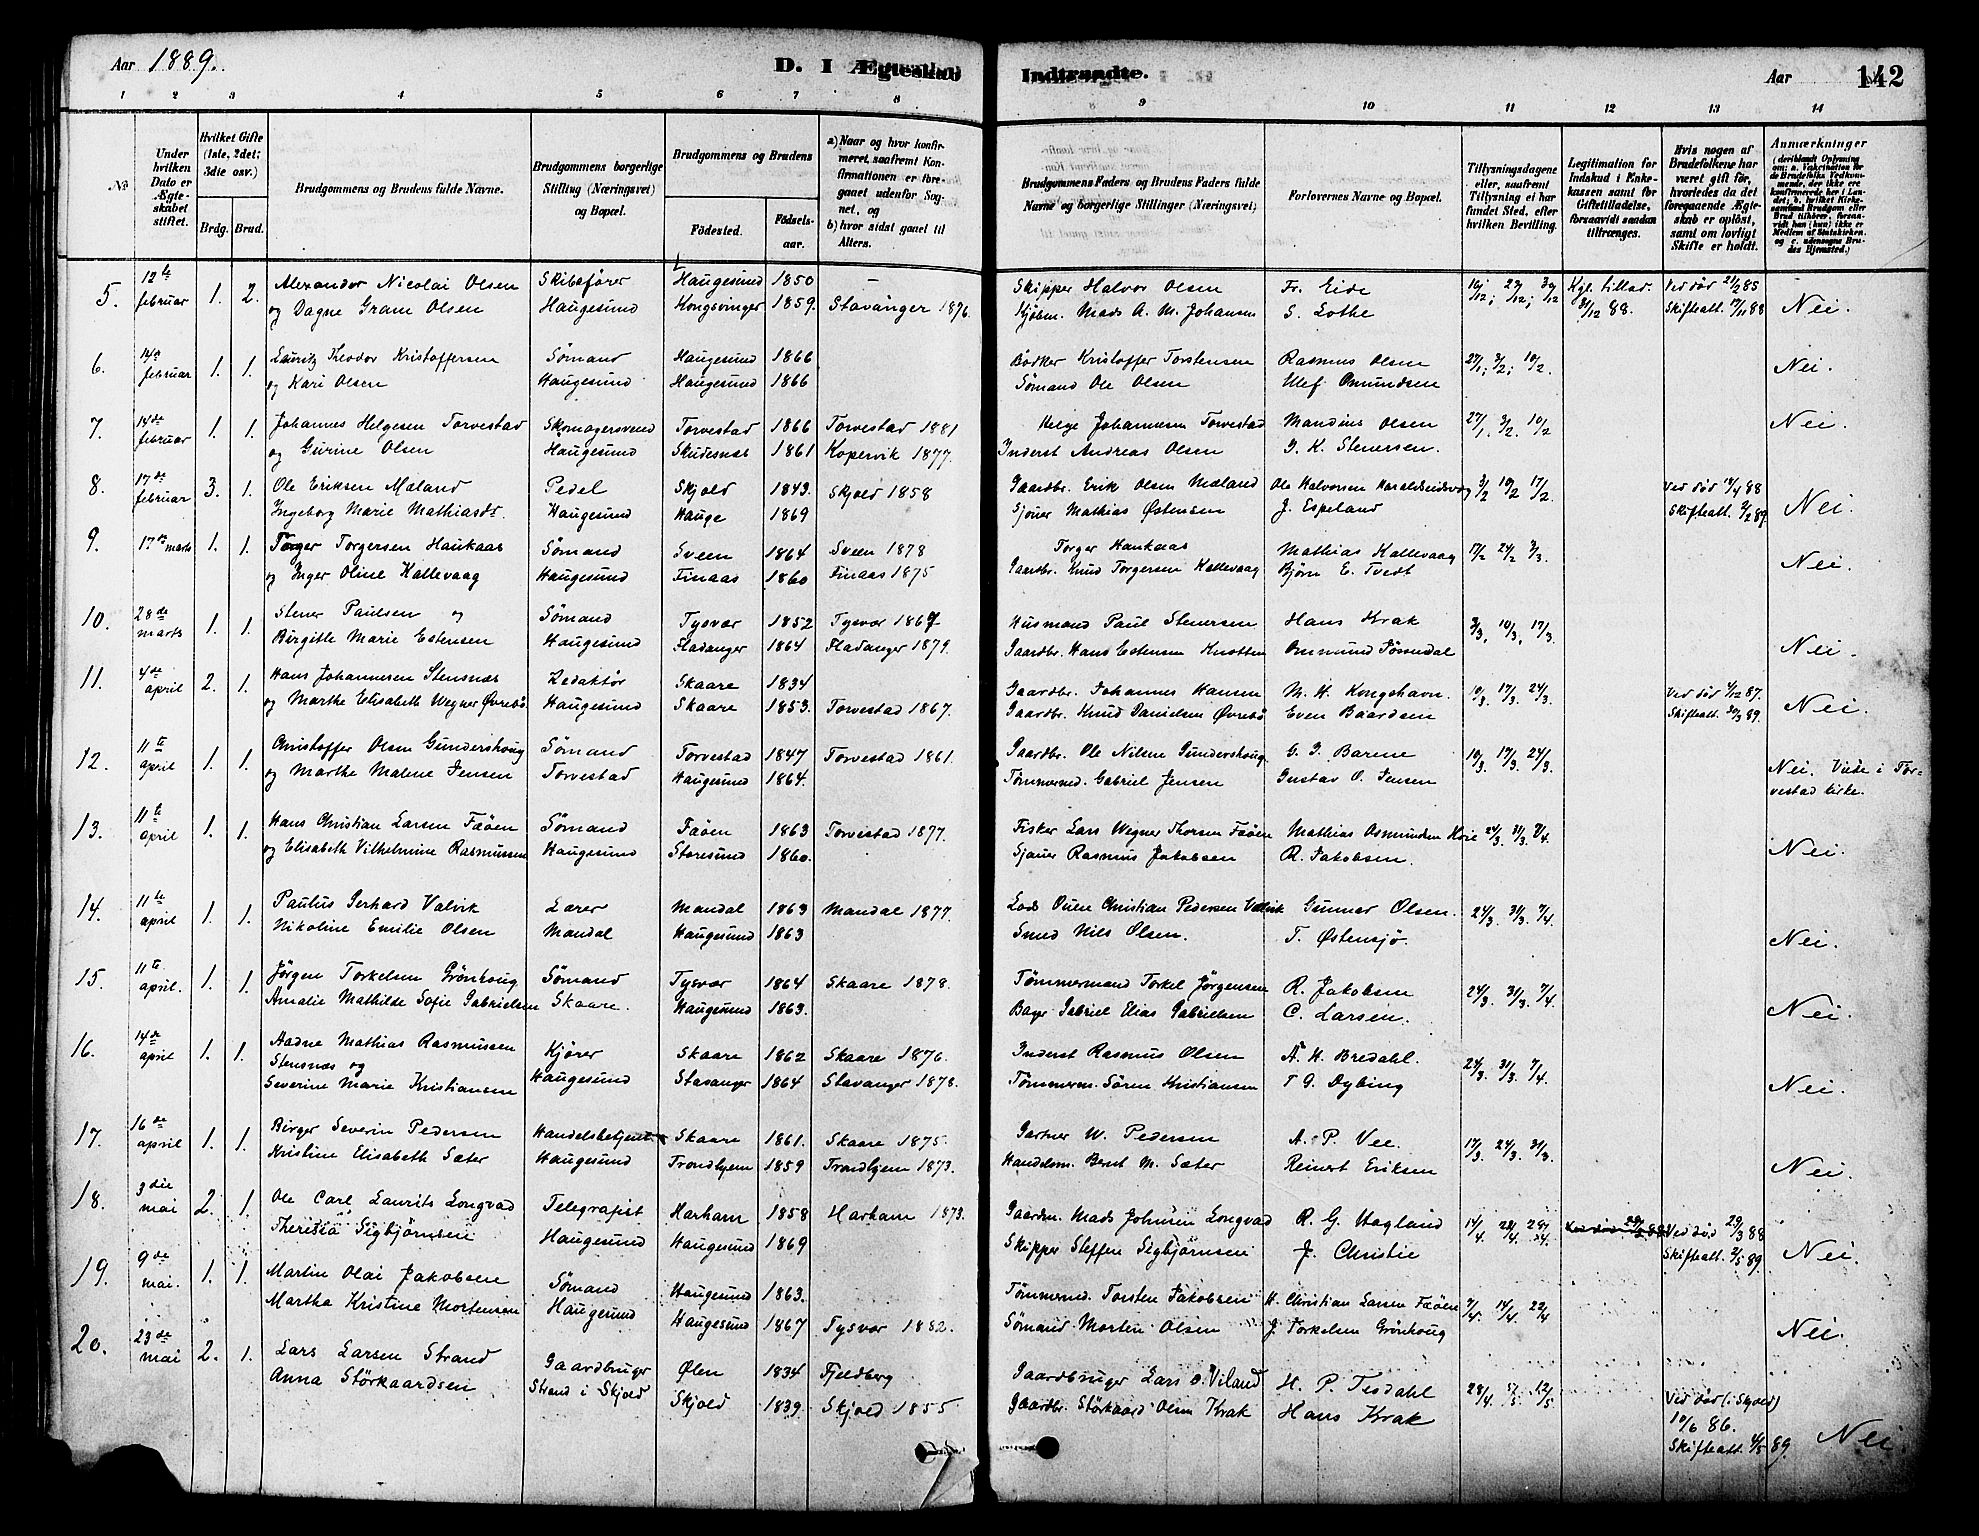 Aar 1889. D. I Ægteskab Indtraadte. Aar 142
1 2 3 4 5 6 7 8 9 10 11 12 13 14
No
Under hvilken Dato er Ægteskabet stiftet.
Hvilket Gifte (1ste, 2det; 3die osv.)
Brdg. Brud.
Brudgommens og Brudens fulde Navne.
Brudgommens borgerlige Stilling (Næringsvei) og Bopæl.
Brudgommens og Brudens
Födested. Födselsaar.
a) Naar og hvor konfirmeret, saafremt Konfirmationen er foregaaet udenfor Sognet, og
b) hvor sidst gaaet til Alters.
Brudgommens Faders og Brudens Faders fulde Navne og borgerlige Stillinger (Næringsvei)
Forlovernes Navne og Bopæl.
Tillysningsdagene eller, saafremt Tillysning ei har fundet Sted, efter hvilken Bevilling.
Legitimation for Indskud i Enkekassen samt for Giftetilladelse, forsaavidt saadan tiltrænges.
Hvis nogen af Brudefolkene har været gift för, hvorledes da det foregaaende Ægteskab er oplöst, samt om lovligt Skifte er holdt.
Anmærkninger
5. 12te februar 1. 2. Alexander Nicolai Olsen Skibsfører Haugesund 1850 — Skipper Halvor Olsen Fr. Eide 16/12; 27/12; 30/12 Kgl. tillad. Ved død 21/2 85
og Dagne Gram Olsen Haugesund Kongsvinger 1859. Stavanger 1876. Kjøbm. Mads A. M. Johansen S. Lothe 31/12 88. Skifteatt. 17/11 88 Nei.
6. 14de februar 1. 1. Lauritz Theodor Kristoffersen Sømand Haugesund 1866 Bødker Kristoffer Torstensen Rasmus Olsen 27/1; 3/2; 10/2. Nei.
og Kari Olsen Haugesund Haugesund 1866 Sømand Ole Olsen Ulef. Omundsen
7. 14de februar 1. 1. Johannes Helgesen Torvestad Skomagersvend Torvestad 1866 Torvestad 1881 Helge Johannesen Torvestad Mandius Olsen 27/1. 3/2. 10/2 Nei.
og Gurine Olsen Haugesund Skudesnæs 1861 Kopervik 1877. Inderst Andreas Olsen I. K. Stenersen.
8. 17de februar 3. 1. Ole Eriksen Mæland Pedel Skjold 1843. Skjold 1858 Gaardbr. Erik Olsen Mæland Ole Halvorsen Haraldseidsvaag 3/2 10/2 17/2 Ved død 14/4 88
Ingeborg Marie Mathiasdr. Haugesund Hauge 1869 Sjouer Mathias Østensen J. Espeland Skifteatt. 2/2 89. Nei.
9. 17de marts 1. 1. Torger Torgersen Haukaas Sømand Sveen 1864 Sveen 1878 Torger Haukaas Mathias Kallevaag 17/2 24/2 3/3. Nei.
og Inger Oline Kallevaag Haugesund Finaas 1860 Finaas 1875 Gaardbr. Knud Torgersen Kallevaag Bjørn E. Tvedt
10. 28de marts 1. 1. Stener Paulsen og Sømand Tysvær 1852 Tysvær 1867 Husmand Paul Stenersen Hans Krak 3/3. 10/3. 17/3.
Birgitte Marie Estensen Haugesund Fladanger 1864 Fladanger 1879. Gaardbr. Hans Estensen Knotten Ommund Jøsendal Nei.
11. 4de april 2. 1. Hans Johannesen Stensnæs Redaktør Skaare 1834 Gaardbr. Johannes Hansen M. H. Kongshavn. 10/3. 17/3. 24/3. Ved død 4/12 87.
og Marthe Elisabeth Wegner Øvrebø Haugesund Skaare 1853. Torvestad 1867. Gaardbr. Knud Danielsen Øvrebø Even Baardsen Skifteatt. 30/3 89. Nei.
12. 11te april 1. 1. Christoffer Olsen Gundershoug Sømand Torvestad 1847 Torvestad 1861. Gaardbr. Ole Nilsen Gundershoug G. I. Barene 10/3. 17/3. 24/3.
og Marthe Malene Jensen Torvestad Haugesund 1864. Tømmermd. Gabriel Jensen Gustav O. Jensen Nei. Viede i Torvestad kirke.
13. 11te april 1. 1. Hans Christian Larsen Fæøen Sømand Fæøen 1863 Torvestad 1877. Fisker Lars Wegner Thorsen Fæøen Mathias Osmundsen Høie 24/3. 31/3. 7/4.
og Elisabeth Vilhelmine Rasmussen Haugesund Storesund 1860. Sjouer Rasmus Jakobsen R. Jakobsen. Nei.
14. 11te april 1. 1. Paulus Gerhard Valvik Lærer Mandal 1863 Mandal 1877. Lods Ouen Christian Pedersen Valvik Gunnar Olsen. 24/3. 31/3. 7/4.
Nikoline Emilie Olsen Mandal Haugesund 1863 Smed Nils Olsen. T. Østensjø. Nei.
15. 11te april. 1. 1. Jørgen Torkelsen Grønhoug Sømand Tysvær 1864 Skaare 1878. Tømmermand Torkel Jørgensen R. Jakobsen 24/3. 31/3. 7/4.
Amalie Mathilde Sofie Gabrielsen Skaare. Haugesund 1863. Bager Gabriel Elias Gabrielsen C. Larsen. Nei.
16. 14de april 1. 1. Aadne Mathias Rasmussen Kjører Skaare 1862 Skaare 1876. Inderst Rasmus Olsen A. H. Bredahl. 24/3. 31/3. 7/4.
Stensnæs og
Severine Marie Kristiansen Haugesund Stavanger 1864 Stavanger 1878. Tømmerm. Sören Kristiansen T G. Dybing Nei.
17. 16de april 1. 1. Birger Severin Pedersen Handelsbetjent Skaare 1861. Skaare 1875. Gartner W. Pedersen A. P. Vee. 17/3. 24/3. 31/3.
Kristine Elisabeth Sæter Haugesund Trondhjem 1859 Trondhjem 1873. Handelsm. Bernt M. Sæter Reinert Eriksen Nei.
18. 3die mai 2. 1. Ole Carl Laurits Longvad Telegrafist Harham 1858 Harham 1873. Gaardm. Mads Johnsen Longvad R. G. Hagland 14/4. 22/4. 28/4. Ved død 29/3 88
Theresia Sigbjørnsen Haugesund Haugesund 1869 Skipper Steffen Sigbjørnsen J. Christie Skifteatt. 2/5 89. Nei.
19. 9de mai. 1. 1. Martin Olai Jakobsen Sømand Haugesund 1863. Tømmermd. Torsten Jakobsen H. Christian Larsen Fæøen 7/4. 14/4. 22/4
Martha Kristine Mortensen Haugesund Haugesund 1867 Tysvær 1882. Sømand Morten Olsen J. Torkelsen Grönhoug Nei.
20. 23de mai 2. 1. Lars Larsen Strand Gaardbruger Ølen 1834 Fjeldberg Gaardbruger Lars O. Viland H. P. Tesdahl 28/4. 5/5. 12/5 Ved død (i Skjold)
Anna Störkaardsen Strand i Skjold Skjold 1839. Skjold 1855 Gaardbr. Störkaard Olsen Krak Hans Krak 10/6 86.
Skifteatt. 4/5 89. Nei.